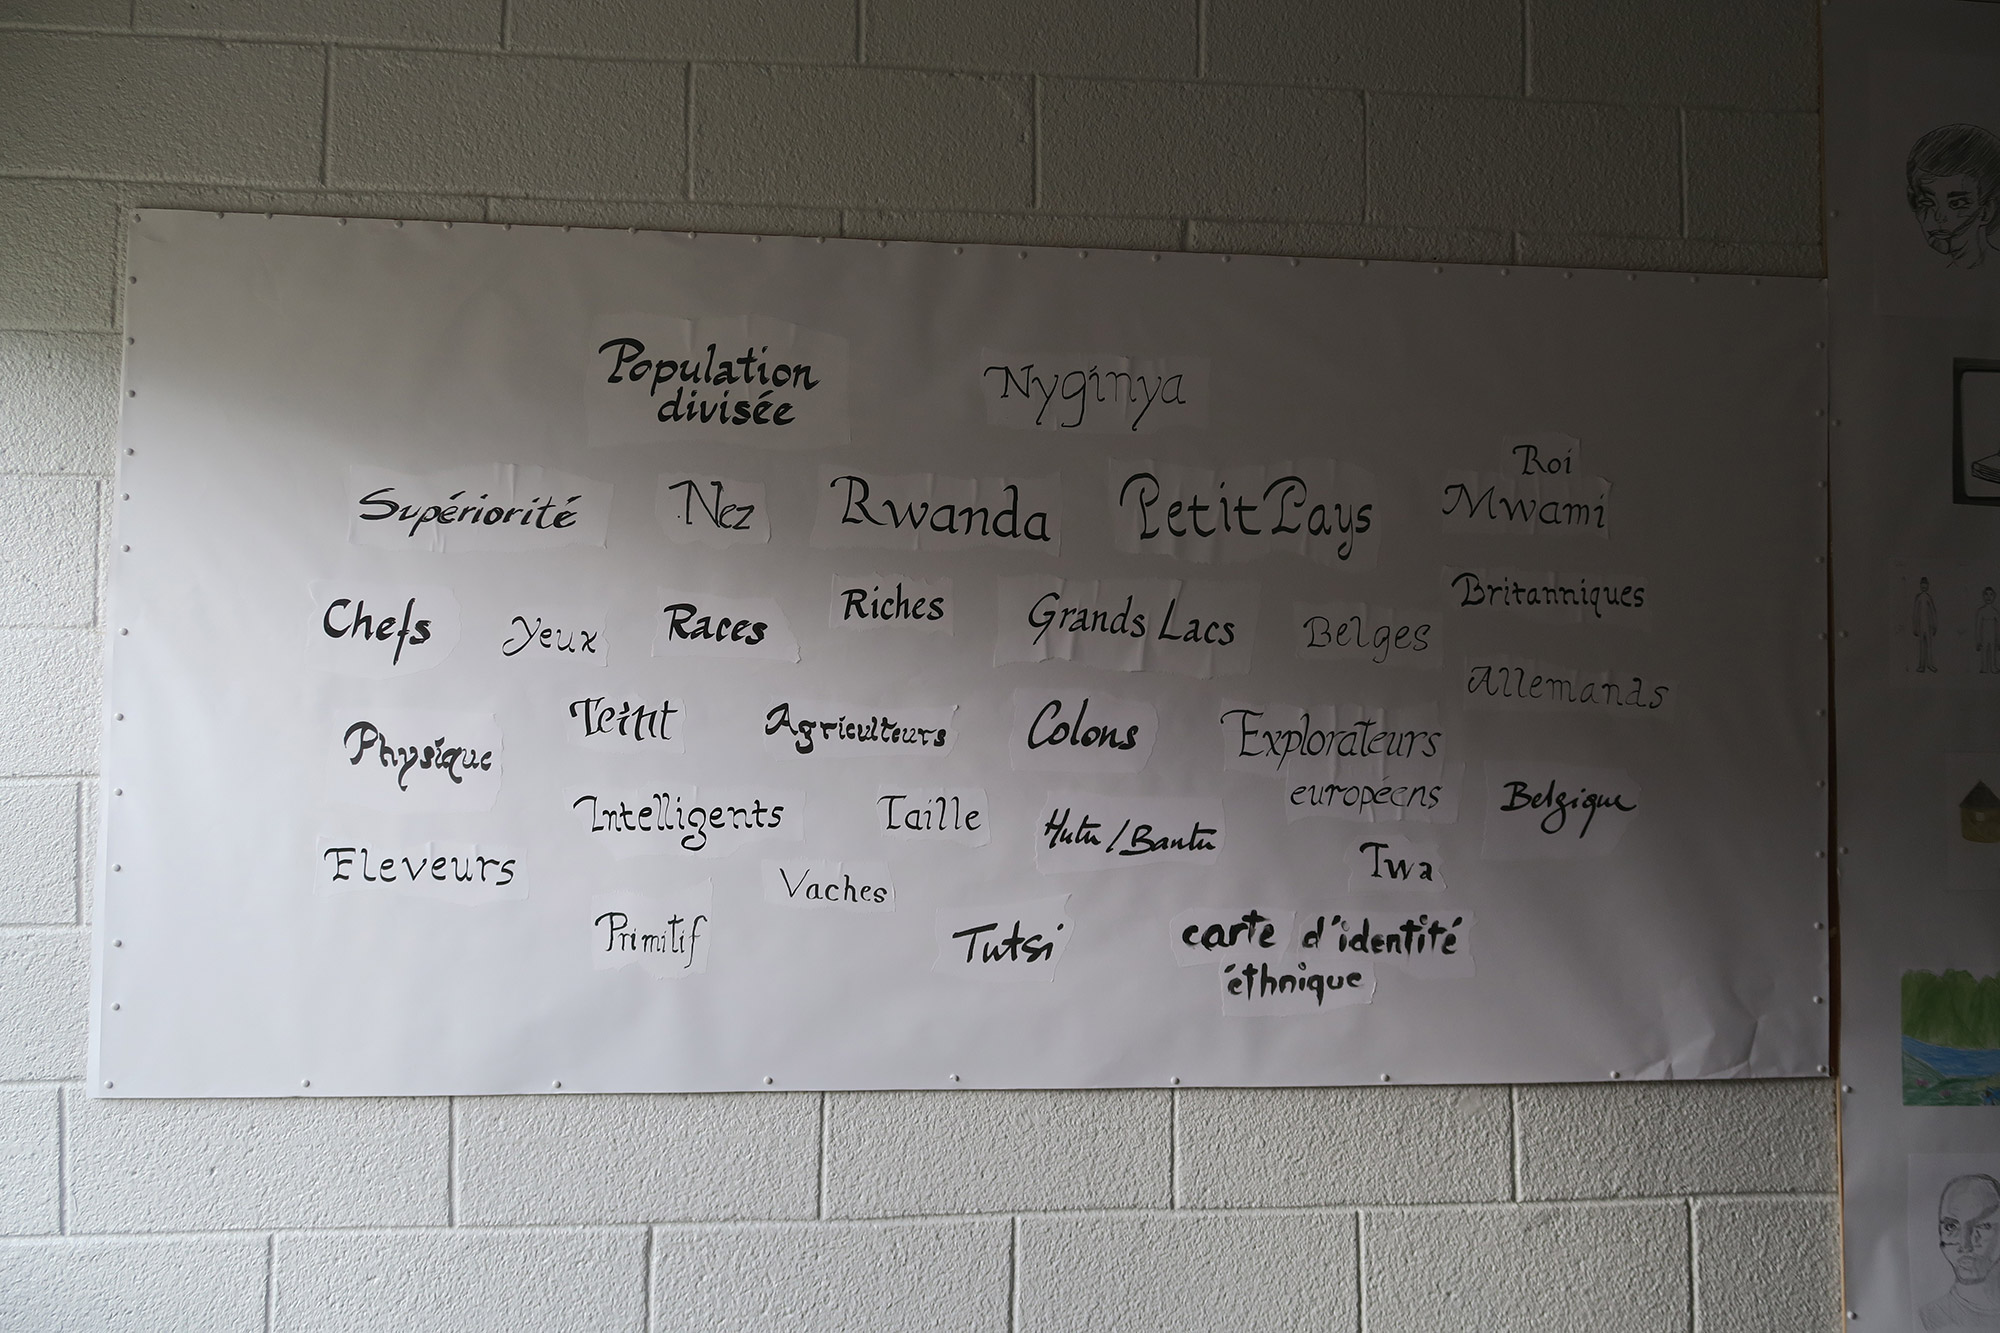 Population
divisée
Nyginya
Supériorité
Nez
Rwanda
Petit Pays
Roi
Mwami
Chefs
Yeux
Races
Riches
Grands Lacs
Belges
Britanniques
Allemands
Physique
Teint
Agriculteurs
Colons
Explorateurs
européens
Belgique
Intelligents
Taille
Hutu / Bantu
Eleveurs
Vaches
Twa
Primitif
Tutsi
carte d'identité
éthnique